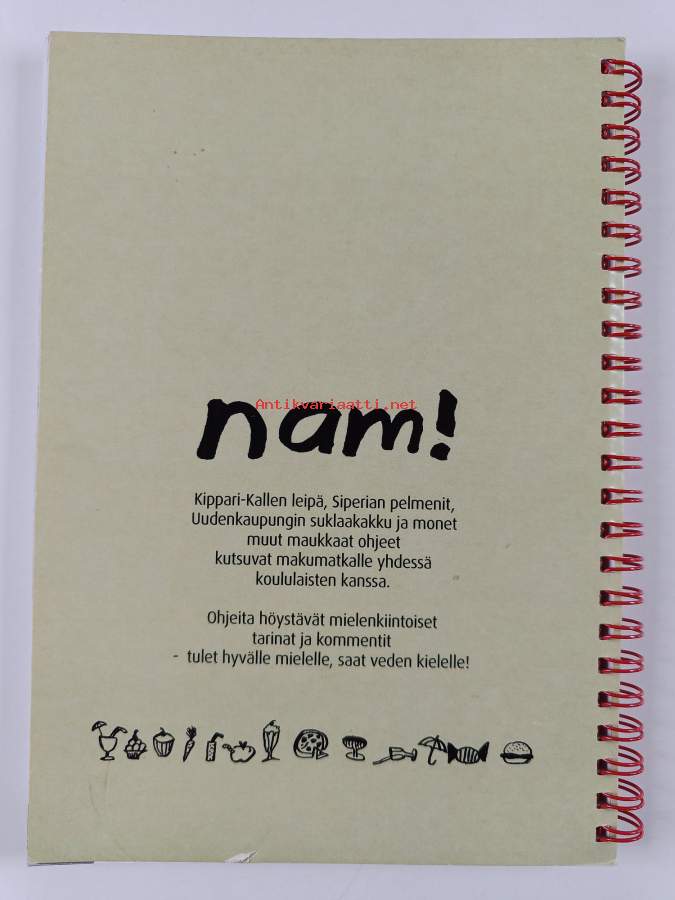 nam!
Antikvariaatti.net
Kippari-Kallen leipä, Siperian pelmenit,
Uudenkaupungin suklaakakku ja monet
muut maukkaat ohjeet
kutsuvat makumatkalle yhdessä
koululaisten kanssa.
Ohjeita höystävät mielenkiintoiset
tarinat ja kommentit
- tulet hyvälle mielelle, saat veden kielelle!